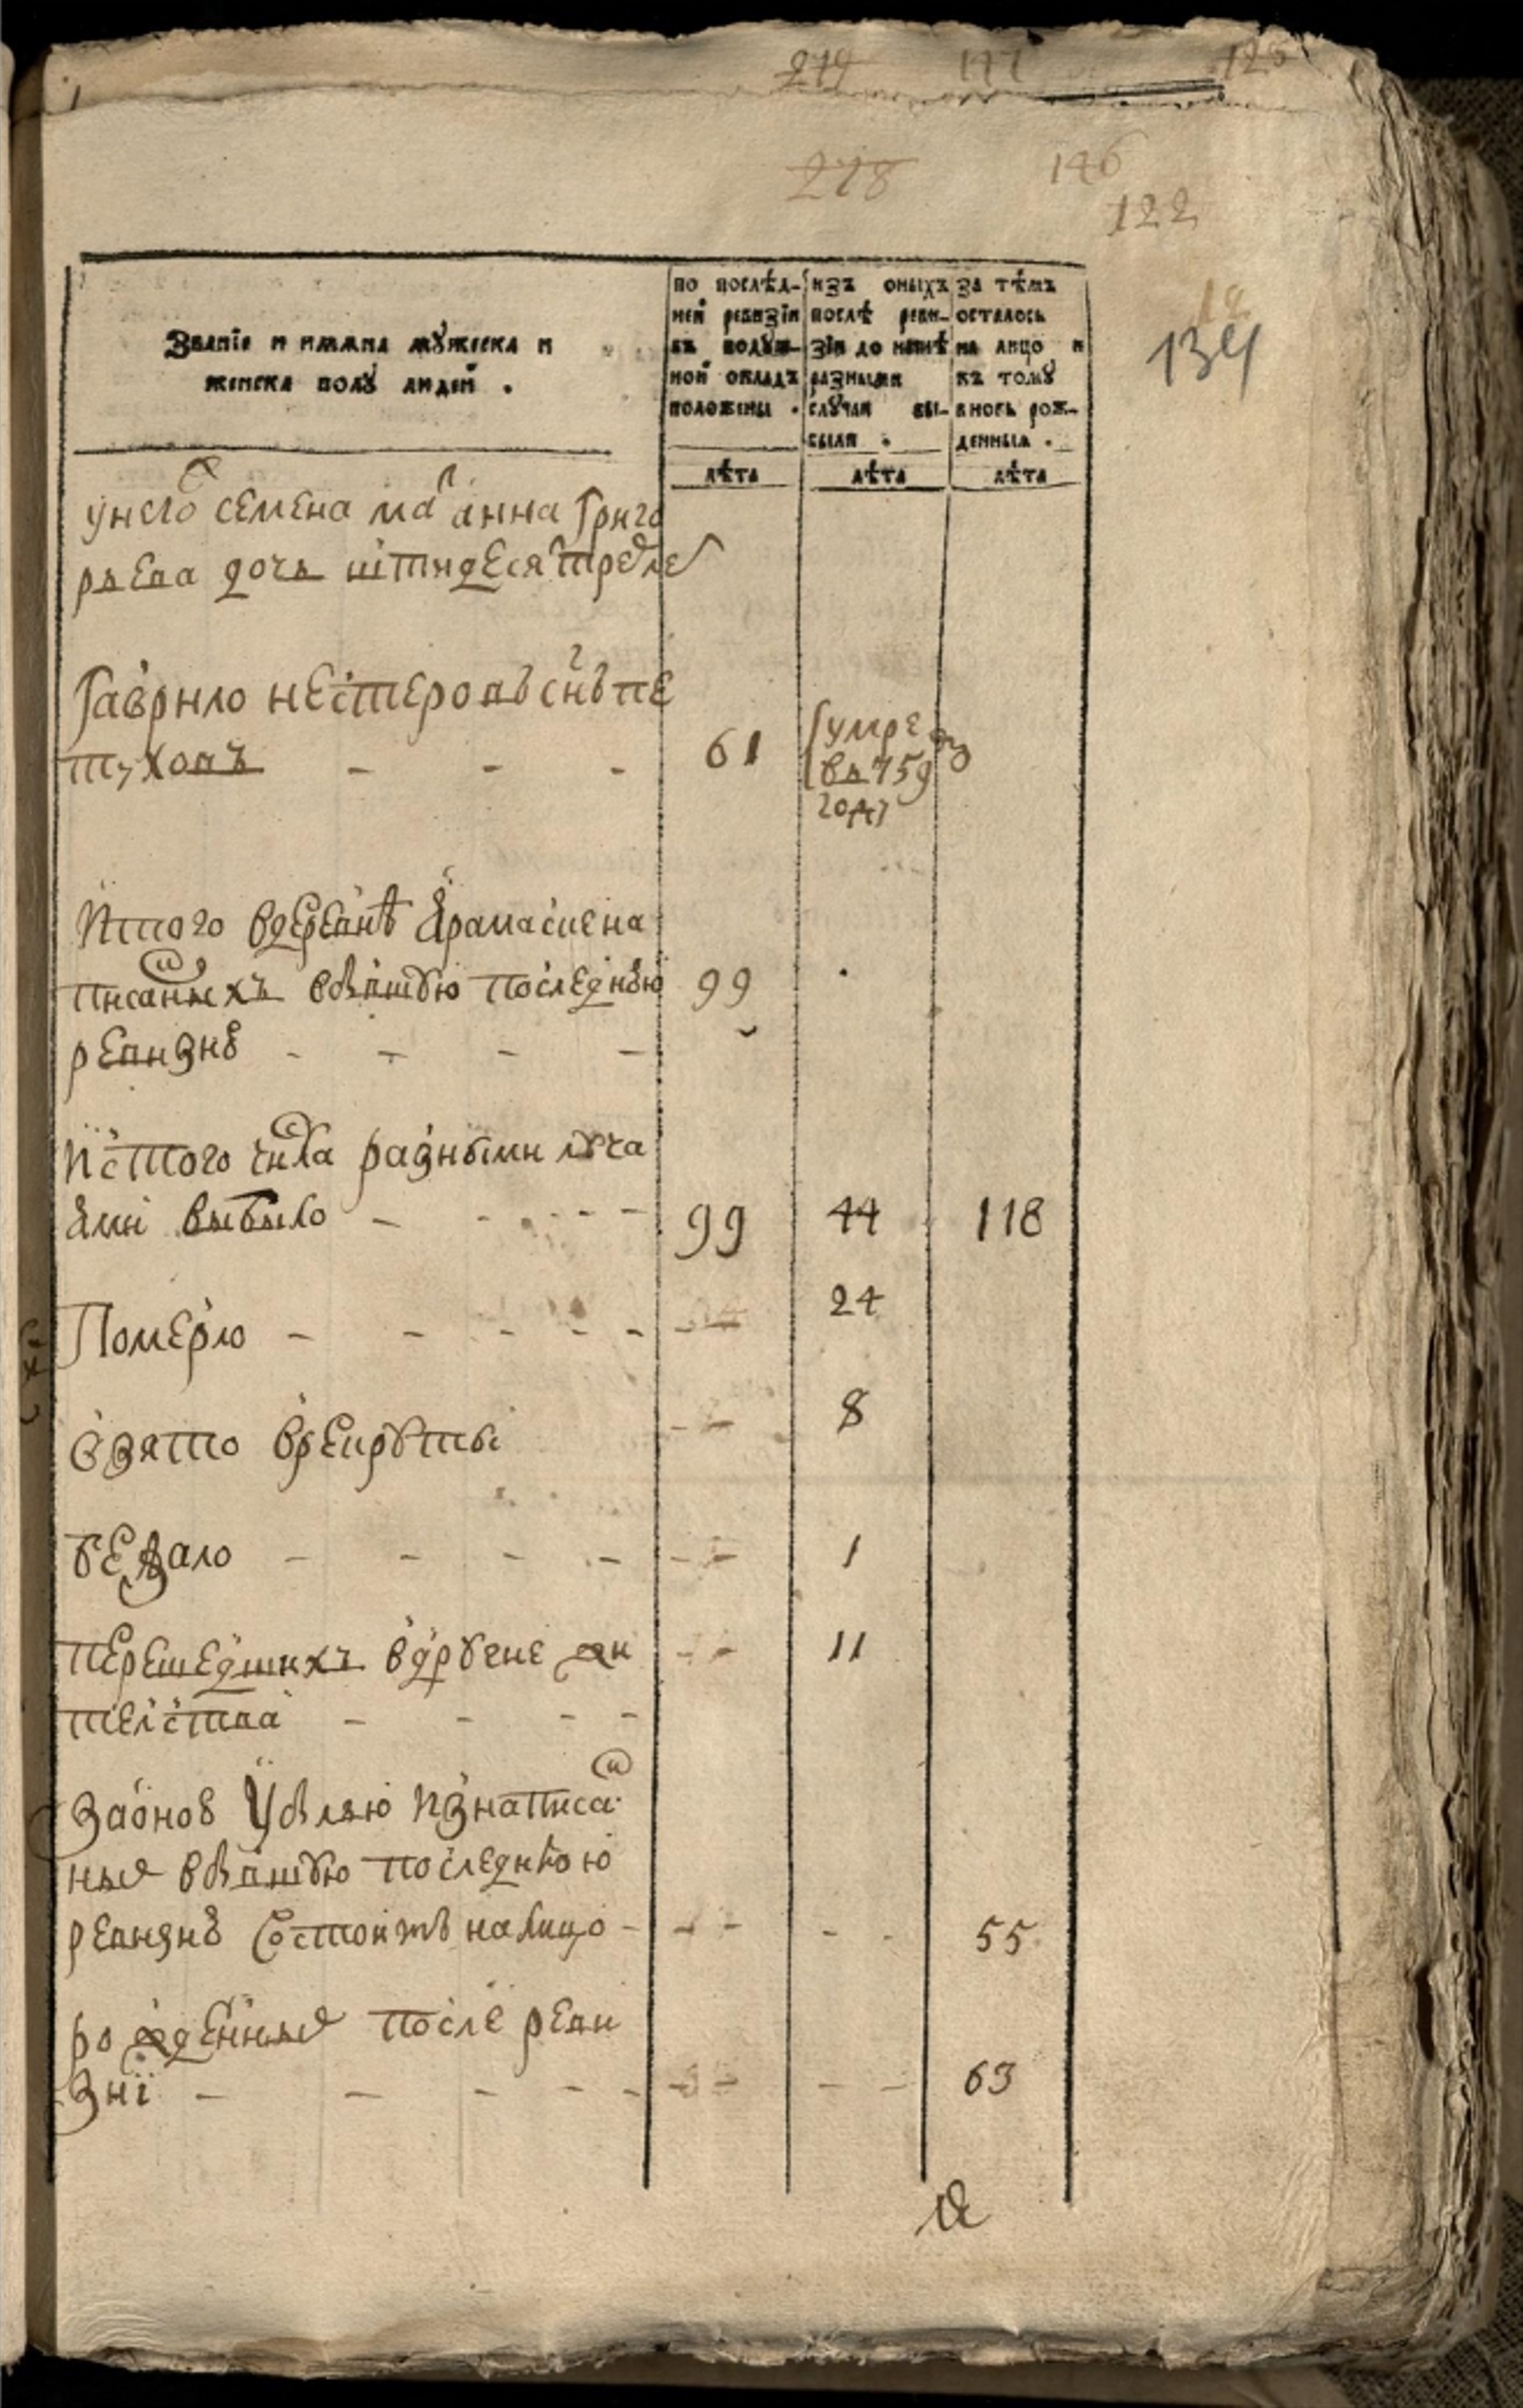 214 117 125
218 146
122
12
134
Званїе и имяна мꙋжеска и
женска полꙋ людей .
по послѣд-
ней ревизїи
въ подꙋш-
ной окладъ
положены .
изъ оныхъ
послѣ реви-
зїи до нынѣ
разными
слꙋчаи вы-
были .
за тѣмъ
осталось
на лицо и
къ томꙋ
вновь рож-
денныя .
лѣта лѣта лѣта
у него семена мат анна Григо
рьева дочь шестидесят трех лет
Гаврило нестеровъ снъ пе
туховъ - - - 61 умре
въ 759
году
Итого вдеревнѣ
писаныхъ бывшꙋю последнюю 99
ревизию - - - -
Ис того числа разными слꙋча
ями выбыло - - - - - 99 44 118
Померло - - - - - 24
взято врекрꙋты 8
бежало - - - - 1
перешедшихъ вдрꙋгие жи 11
телства - - - -
За оною убылью из написа
ныя вбывшꙋю последнюю
ревизию состоитъ на лицо - - - - - 55
рожденныя после реви
зиї - - - - - - - - - 63